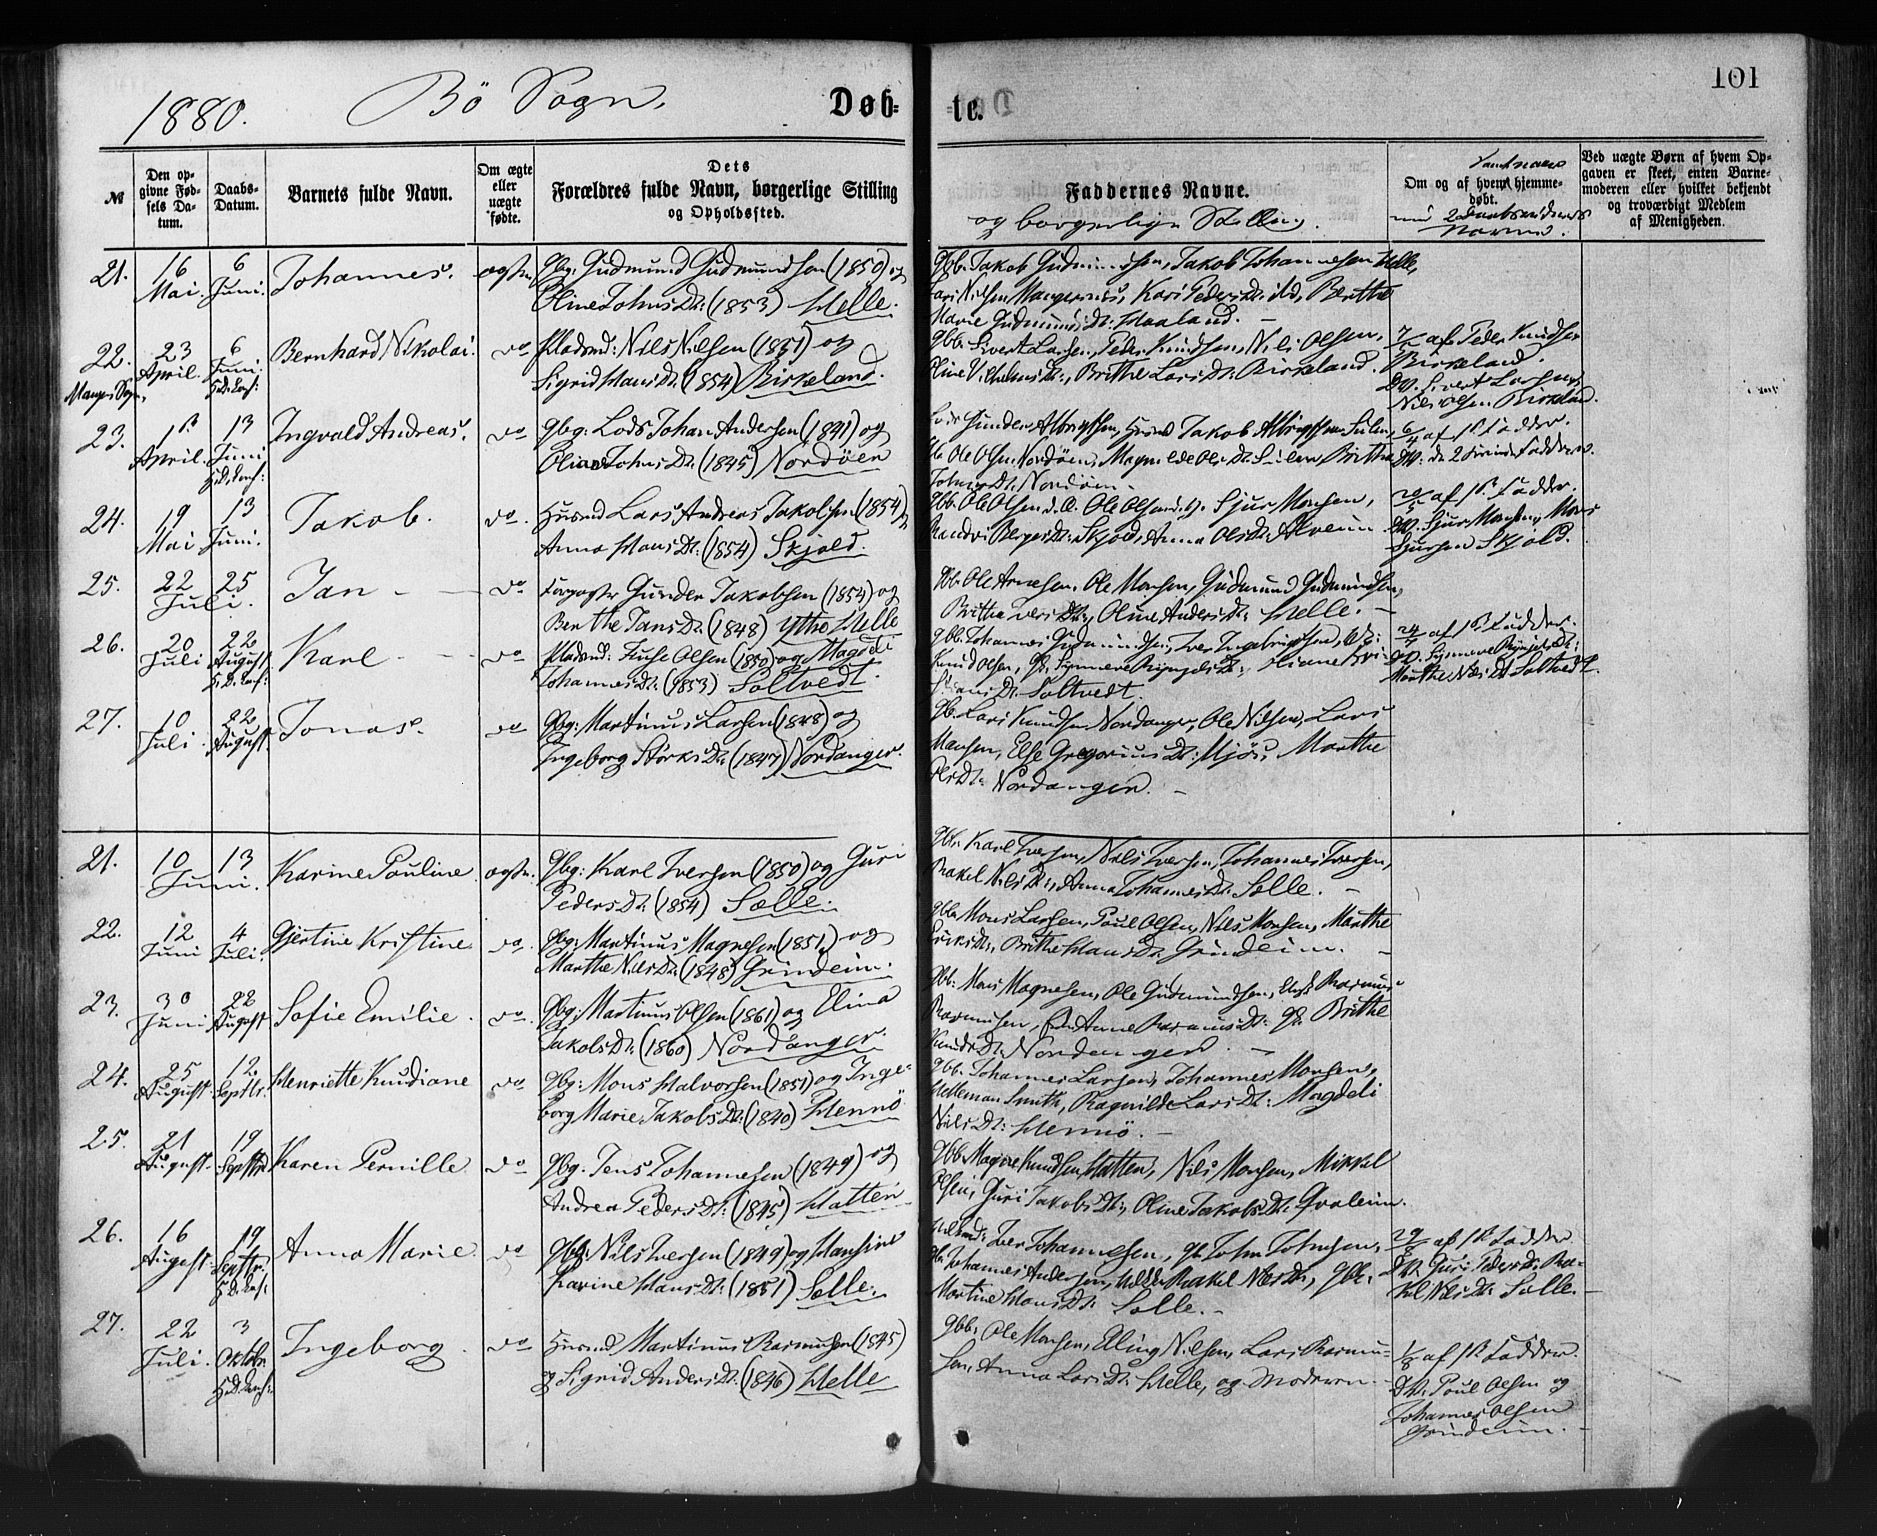 1880. Bö Sogn.
Døb=
te.
101
№
Den opgivne Fødsels Datum.
Daabs-Datum.
Barnets fulde Navn.
Om ægte eller uægte fødte.
Dets Forældres fulde Navn, borgerlige Stilling og Opholdssted.
Faddernes Navne.
og borgerlige Stilling.
Om og af hvem hjemmedøbt.
Ved uægte Børn af hvem Opgaven er skeet, enten Barnemoderen eller hvilket bekjendt og troværdigt Medlem af Menigheden.
21. 16 Mai. 6 Juni. Johannes. ægte. Gbg: Gudmund Gudmundsen (1850) og
Oline Johns Dt: (1853) Helle.
Gbb. Jakob Gudmundsen, Jakob Johannesen Helle,
Lars Nilsen Mangernes, Kari Peders Dt: ibd, Berthe
Marie Gudmunds Dt: Haaland.
22. 23 April. 6 Juni. Bernhard Nikolai. do Pladsmd: Nils Nilsen (1851) og
Sigrid Hans Dt: (1854) Birkeland.
Gbb. Sivert Larsen, Peder Knudsen, Nils Olsen,
Oline Vilhelms Dt:, Brithe Lars Dt: Birkeland.
af Peder Knudsen
Birkeland.
DV. Sivert Larsen,
Nils Olsen Birkeland.
23. 13 April. 13 Juni Ingvald Andreas. do Gbg: Lods Johan Andersen (1841) og
Oliane Johns Dt: (1845) Nordöen
Lods Gunder Albrigtsen, Husmd Jakob Albrigtsen Sulen,
Ole Olsen Nordöen, Magnilde Ols Dt: Sulen Brithe
Johns Dt: Nordöen.
6/4 af 1st. Fadder.
DV: de 2 Fadder.
24. 19 Mai 13 Juni. Jakob. do. Husmd Lars Andreas Jakobsen (1854) og
Anna Hans Dt: (1854) Skjold.
Gbb. Ole Olsen d. Æ. Ole Olsen d. y. Sjur Monsen,
Randvi Berges Dt: Skjold, Anna Ols Dt: Alveim
20/5 af 1st. Fadder.
DV. Sjur Monsen, Mons
Sjursen Skjold.
25. 22 25 Juli. Jan do Gunder Jakobsen (1854) og
Berthe Jans Dt: (1848) ytre Helle
Gbb. Ole Arnesen, Ole Monsen, Gudmund Gudmundsen,
Brithe Dt:, Oline Anders Dt: Helle.
26. 20 Juli 22 August Karl do Pladsmd: Fuse Olsen (1850) og Magdeli
Johannes Dt: (1853) Soltvedt.
Gbb. Johannes Gudmundsen, Iver Ingebrigtsen,
Knud Olsen, Synneve Dt:, Oliane
Dt: Soltvedt.
24/7 af 1st. Fadder.
DV. Synneve Dt:
Marthe Nils Dt Soltvedt.
27. 10 Juli. 22 August. Jonas. do Gbg: Martinus Larsen (1848) og
Ingeborg Störks Dt: (1847) Nordanger.
Gb. Lars Knudsen Nordanger, Ole Nilsen, Lars
Hansen, Else Gregorius Dt: Mjös, Marthe
Ols Dt: Nordanger.
21. 10 13 Juni. Karine Pauline. ægte. Gbg: Karl Iversen (1850) og Guri
Peders Dt: (1854) Sælle.
Gbb. Karl Iversen, Nils Iversen, Johannes Iversen,
Rakel Nils Dt:, Anna Johannes Dt: Sælle.
22. 12 Juni 4 Juli. Gjertine Kristine. do. Gbg: Martinus Magnesen (1851) og
Marthe Nils Dt: (1848) Grindeim.
Gbb. Mons Larsen, Poul Olsen, Nils Monsen, Marthe
Eriks Dt:, Brithe Hans Dt: Grindeim.
23. 30 Juni 22 August Sofie Emilie. do. Gbg: Martinus Olsen (1861) og Elina
Jakobs Dt: (1860) Nordanger.
Gbb: Mons Magnesen, Ole Gudmundsen, Rasmus
Rasmussen, Anne Rasmus Dt: Brithe
Knuds Dt: Nordanger.
24. 25 August. 12 Septbr. Henriette Knudiane do Gbg: Mons Halvorsen (1851) og Inge-
borg Marie Jakobs Dt: (1840) Hennö
Gbb. Johannes Larsen, Johannes Monsen,
Helleman Smith, Ragnilde Lars Dt: Magdeli
Nils Dt: Hennö.
25. 21 August. 19 Septbr Karen Pernille do Gbg. Jens Johannesen (1849) og
Andrea Peders Dt: (1845) Hatten
Gbb. Magne Knudsen Hatten, Nils Monsen, Mikkel
Olsen, Guri Jakobs Dt:, Oline Jakobs Dt: Qvaleim.
26. 16 August. 19 Septbr. Anna Marie do Gbg: Nils Iversen (1849) og Hansine
Karine Hans Dt: (1851) Sælle.
Iver Johannesen, Gb. John Johnsen,
Gb. Johannes Andersen, Rakel Nils Dt:,
Martine Hans Dt: Sælle.
29/8 af 1st. Fadder
DV. Guri Peders Dt. Ra-
kel Nils Dt: Sælle.
27. 22 Juli. 3 Oktobr. Ingeborg. do Husmd Martinus Rasmusen (1845)
og Sigrid Anders Dt: (1846) Helle
Gbb: Ole Monsen, Elling Nilsen, Lars Rasmu-
sen, Anna Lars Dt: Helle, og Moderen.
1/8 af 1st. Fadder.
DV. Poul Olsen og
Johannes Olsen
Grindeim.